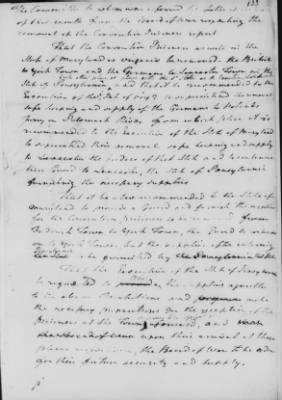 133
The Committee to whom was referred the letter of the
of this month from the Board of War respecting the
removal of the Convention Prisoners report
That the Convention Prisoners now in the
State of Maryland & Virginia be removed the British
to York Town and the Germans to Lancaster Town in the
State of Pennsylvania, and that it be recommended to the
Executive of the State of Virga. to superintend the removal
safe keeping and supply of the Germans to
ferry on Potowmack River from which place it is
recommended to the Executive of the State of Maryland
to superintend their removal safe keeping and supply
to Lancaster the borders of that State and
Guard to Lancaster, the State of Pensylvania
furnishing the necessary supplies
That it be also recommended to the State of
Maryland to provide a Guard and furnish the
for the Convention prisoners to be removed from
Frederick Town to York Town, the Guard to
to York Town, the supplies after entering
be furnished by the
That the Executive of the State of Pensylvania
be requested to the supplies agreeable
to the above Resolutions and make
the necessary preparations for the reception of the
Prisoners at the Towns aforesaid, and
upon their arrival at these
places the Board of War to take order
for their future security and supply.